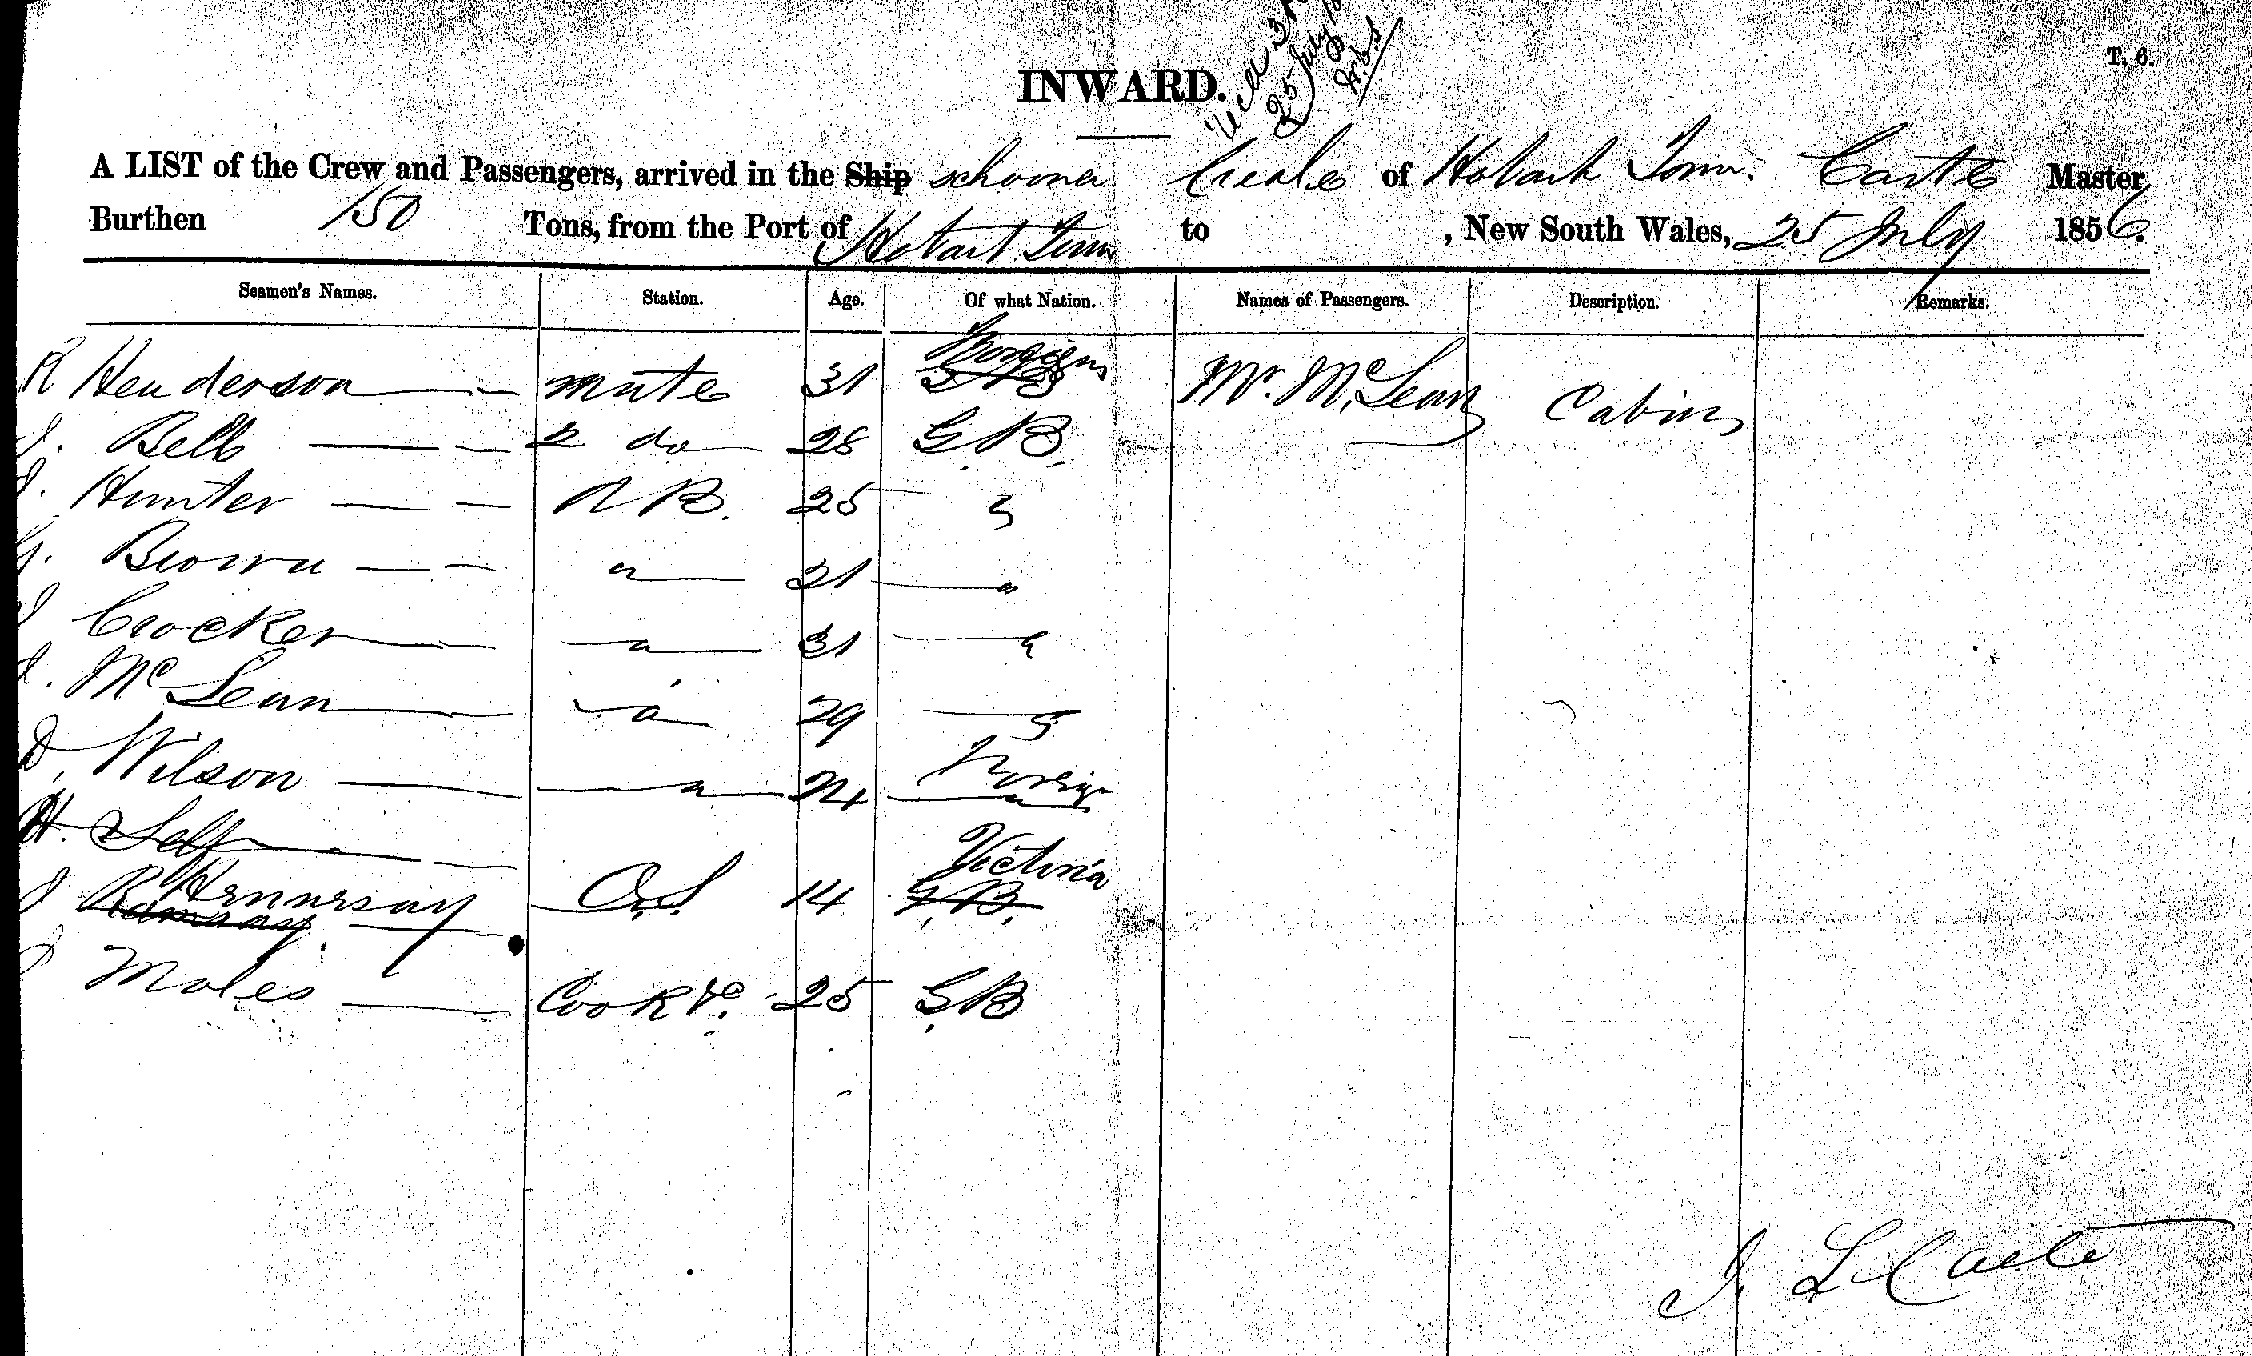 T. 6.
INWARD.
25 July
A LIST of the Crew and Passengers, arrived in the Ship schooner of Hobart Town. Master
Burthen 150 Tons, from the Port of Hobart Town to , New South Wales, 25 July 1856.
Seamen's Names. Station. Age. Of what Nation. Names of Passengers. Description. Remarks.
Foreign
R Henderson mate 31 Mr. McLean Cabin
J. Bell 2 do 28 G.B.
J. Hunter AB. 25 "
Brown " 31 "
J Crocker " 31 "
J. McLean " 29 "
D. Wilson " 24 Foreign
H. Self
Victoria
J Ramsay O.S. 14 G.B.
J Moles Cook &c. 25 G.B